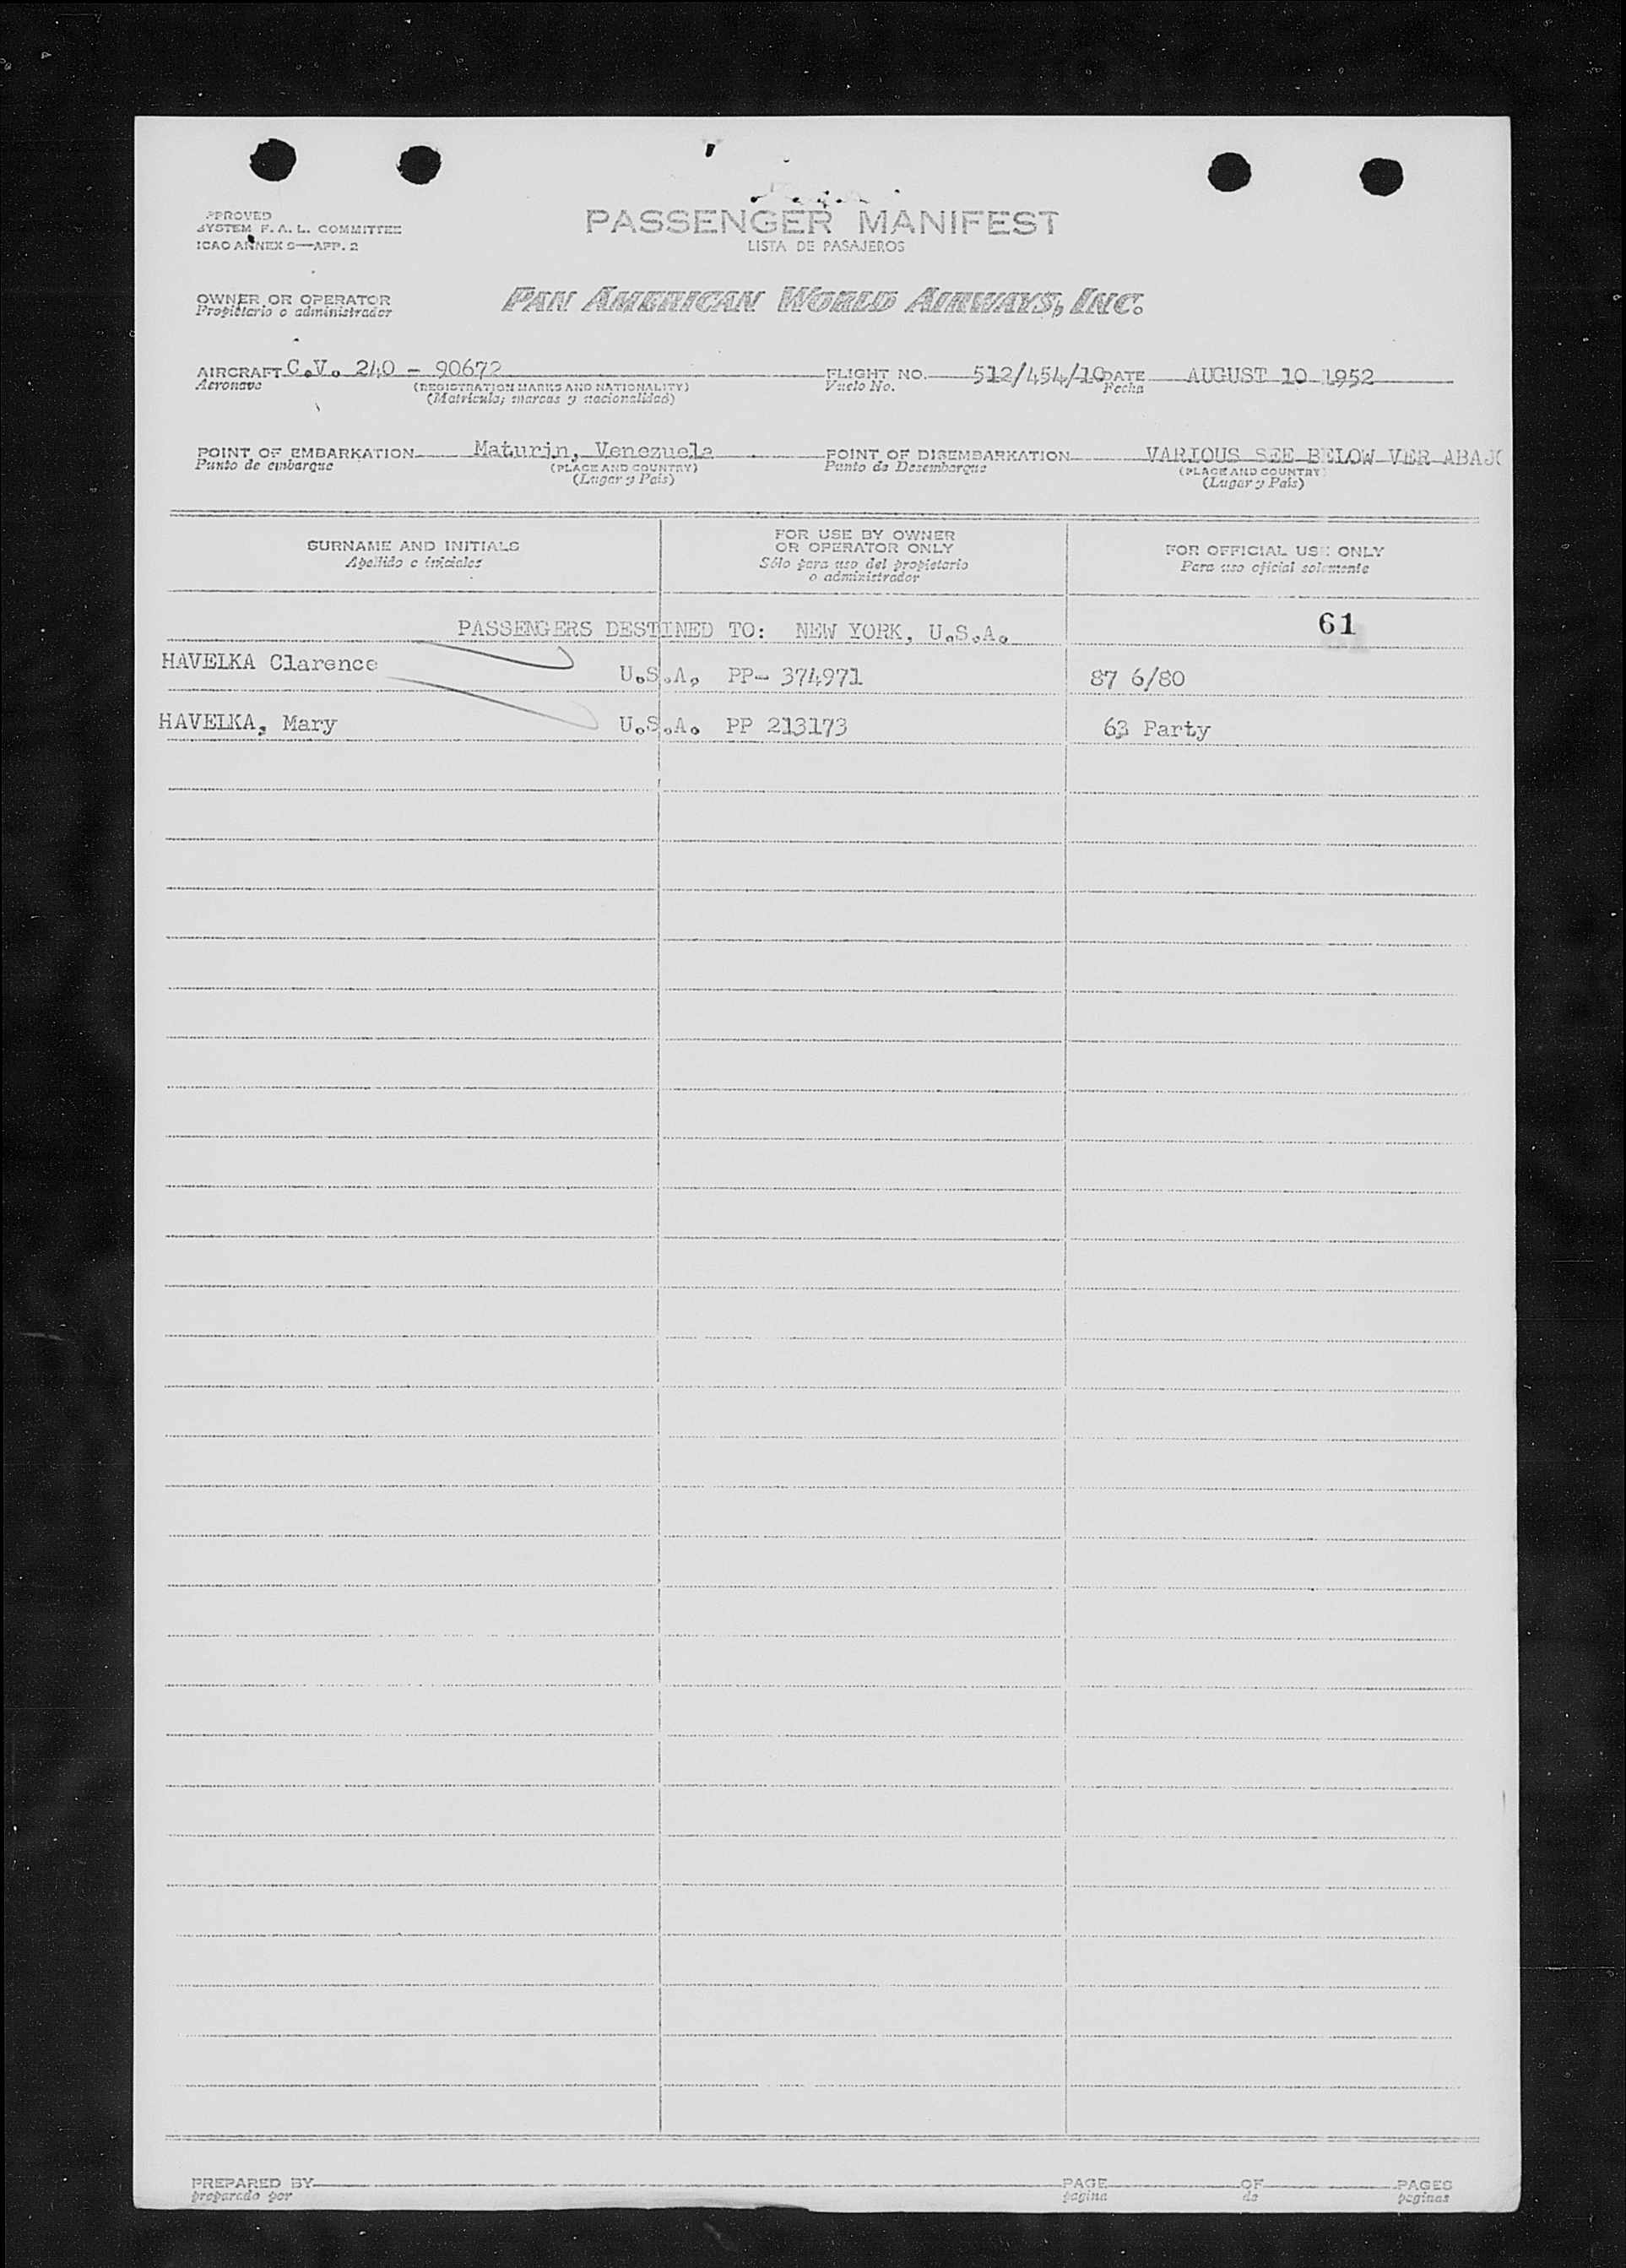 PPROVED
SYSTEM F. A. L. COMMITTEE
ICAO ANNEX 9—APP. 2
PASSENGER MANIFEST
LISTA DE PASAJEROS
OWNER OR OPERATOR
Propietario o administrador
PAN AMERICAN WORLD AIRWAYS, INC.
AIRCRAFT C.V. 240 - 90672 FLIGHT NO. 512/454/10 DATE AUGUST 10 1952
Aeronave (REGISTRATION MARKS AND NATIONALITY) Vuelo No. Fecha
(Matricula; marcas y nacionalidad)
POINT OF EMBARKATION Maturin, Venezuela POINT OF DISEMBARKATION VARIOUS SEE BELOW VER ABAJO
Punto de embarque (PLACE AND COUNTRY) Punto de Desembarque (PLACE AND COUNTRY)
(Lugar y Pais) (Lugar y Pais)
SURNAME AND INITIALS
Apellido e iniciales
FOR USE BY OWNER
OR OPERATOR ONLY
Sólo para uso del propietario
o administrador
FOR OFFICIAL USE ONLY
Para uso oficial solamente
PASSENGERS DESTINED TO: NEW YORK, U.S.A. 61
HAVELKA Clarence U.S.A. PP- 374971 87 6/80
HAVELKA, Mary U.S.A. PP 213173 63 Party
PREPARED BY PAGE OF PAGES
preparado por pagina de paginas